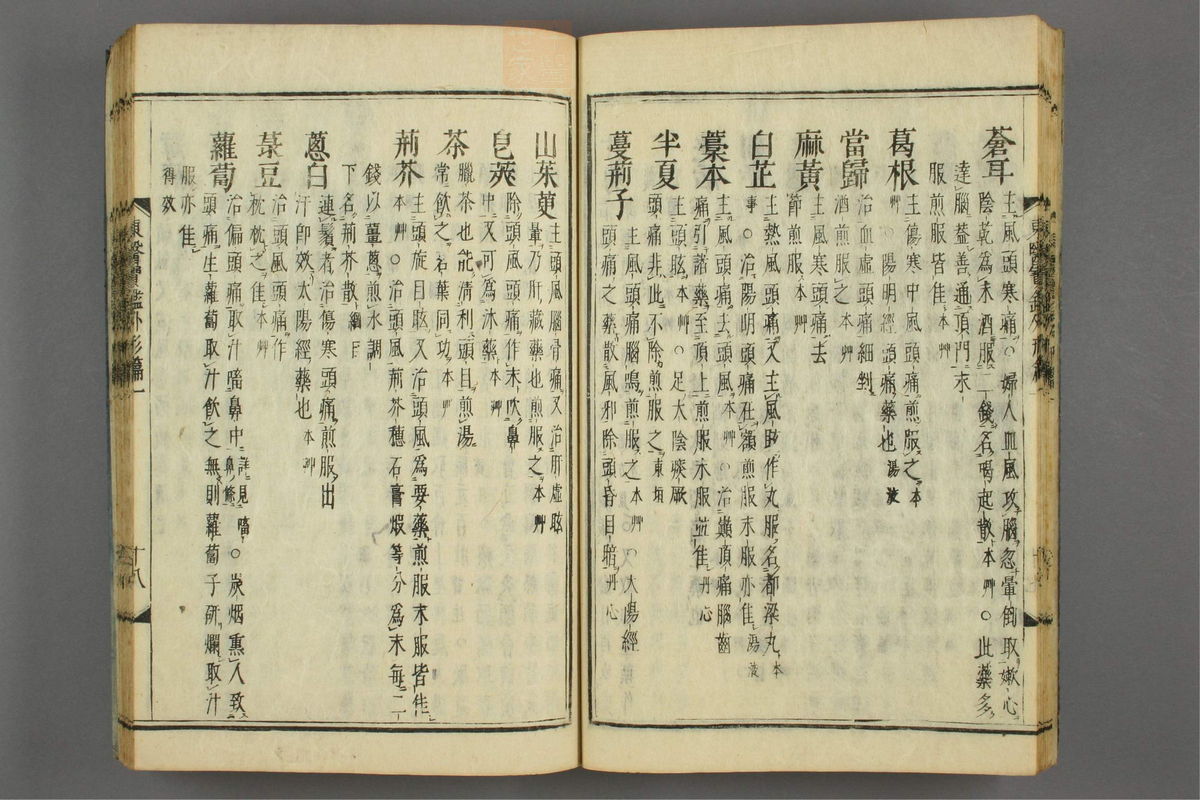 蒼耳 主風頭寒痛○婦人血風攻腦忽暈倒取嫩心
陰乾爲末酒服二錢名喝起散本艸○此藥多
達腦蓋善通頂門末
服煎服皆佳本艸
葛根 主傷寒中風頭痛煎服之本
艸○陽明經頭痛藥也湯液
當歸 治血虛頭痛細剉
酒煎服之本艸
麻黃 主風寒頭痛去
節煎服本艸
白芷 主熱風頭痛又主風眩作丸服名都梁丸本
事○治陽明頭痛在額煎服末服亦佳湯液
藁本 主風頭痛去頭風本艸○治巔頂痛腦齒
痛引諸藥至頂上煎服末服並佳丹心
半夏 主頭眩本艸○足太陰痰厥
頭痛非此不除煎服之東垣
蔓荊子 主風頭痛腦鳴煎服之本艸○太陽經
頭痛之藥散風邪除頭昏目暗丹心
山茱萸 主頭風腦骨痛又治肝虛眩
暈乃肝藏藥也煎服之本艸
皂莢 除頭風頭痛作末吹鼻
中又可爲沐藥本艸
茶 臘茶也能清利頭目煎湯
常飲之茗葉同功本艸
荊芥 主頭旋目眩又治頭風爲要藥煎服末服皆佳
本艸○治頭風荊芥穗石膏煆等分爲末每二
錢以薑蔥煎水調
下名荊芥散綱目
蔥白 連鬚者治傷寒頭痛煎服出
汗卽效太陽經藥也本艸
菉豆 治頭風頭痛作
枕枕之佳本艸
蘿蔔 治偏頭痛取汁㗜鼻中詳見㗜鼻條○炭烟熏人致
頭痛生蘿蔔取汁飲之無則蘿蔔子硏爛取汁
服亦佳
得效
東醫寶鑑外形篇一
十八